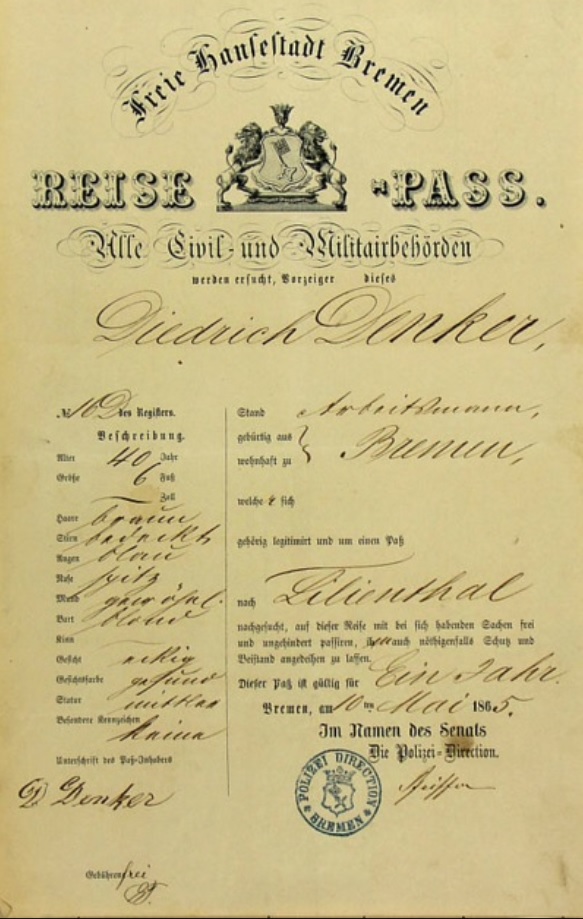 Freie Hansestadt Bremen
REISE-PASS.
Alle Civil- und Militairbehörden
werden ersucht, Vorzeiger dieses
Diedrich Denker,
№ 16 D des Registers.
Beschreibung.
Alter 40 Jahr
Größe 6 Fuß
Zoll
Haare braun
Stirn bedeckt
Augen blau
Nase spitz
Mund gewöhnl.
Bart blond
Kinn
Gesicht eckig
Gesichtsfarbe gesund
Statur mittler
Besondere Kennzeichen
keine
Unterschrift des Paß-Inhabers
D Denker
Gebühren frei
Stand Arbeitsmann,
gebürtig aus
wohnhaft zu } Bremen,
welcher sich
gehörig legitimirt und um einen Paß
nach Lilienthal
nachgesucht, auf dieser Reise mit bei sich habenden Sachen frei
und ungehindert passiren, ihm auch nöthigenfalls Schutz und
Beistand angedeihen zu lassen.
Dieser Paß ist gültig für Ein Jahr.
Bremen, am 10ten Mai 1865.
Im Namen des Senats
Die Polizei-Direction.
POLIZEI DIRECTION
BREMEN